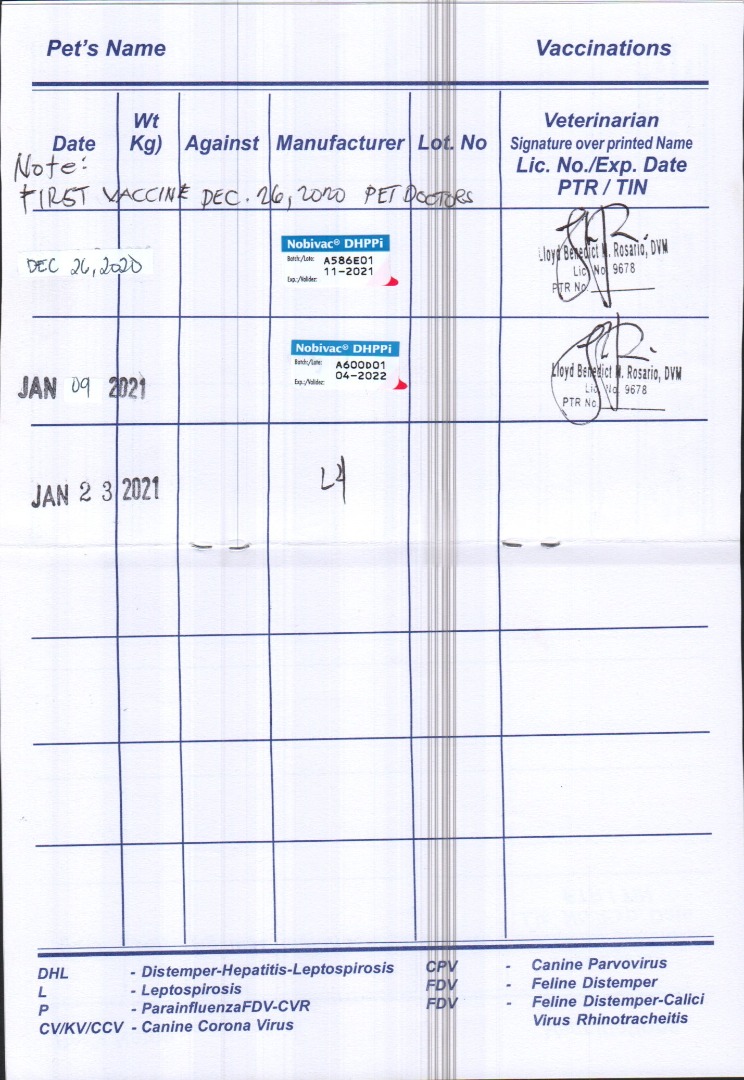 Pet's Name Vaccinations
Date Wt Kg) Against Manufacturer Lot. No Veterinarian
Signature over printed Name
Lic. No./Exp. Date
PTR / TIN
Note:
FIRST VACCINE DEC. 26, 2020 PET DOCTORS
DEC 26, 2020
Nobivac® DHPPi
Batch:/Lote: A586E01
11-2021
Exp.:/Validez:
Lloyd Benedict M. Rosario, DVM
Lic. No. 9678
PTR No.
JAN 09 2021
Nobivac® DHPPi
Batch:/Lote: A600D01
04-2022
Exp.:/Validez:
Lloyd Benedict M. Rosario, DVM
Lic. No. 9678
PTR No.
JAN 23 2021
L4
DHL - Distemper-Hepatitis-Leptospirosis
L - Leptospirosis
P - ParainfluenzaFDV-CVR
CV/KV/CCV - Canine Corona Virus
CPV - Canine Parvovirus
FDV - Feline Distemper
FDV - Feline Distemper-Calici
Virus Rhinotracheitis